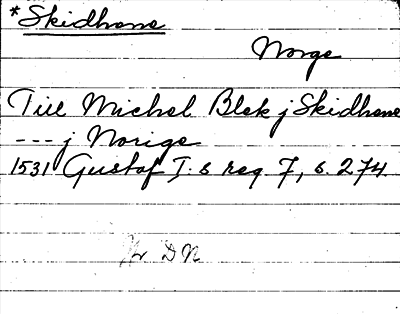 *Skidhene
Norge
Till Michel Blek j Skidhene
--- j Norige
1531 Gustaf I.s reg. 7, s. 274.
DN